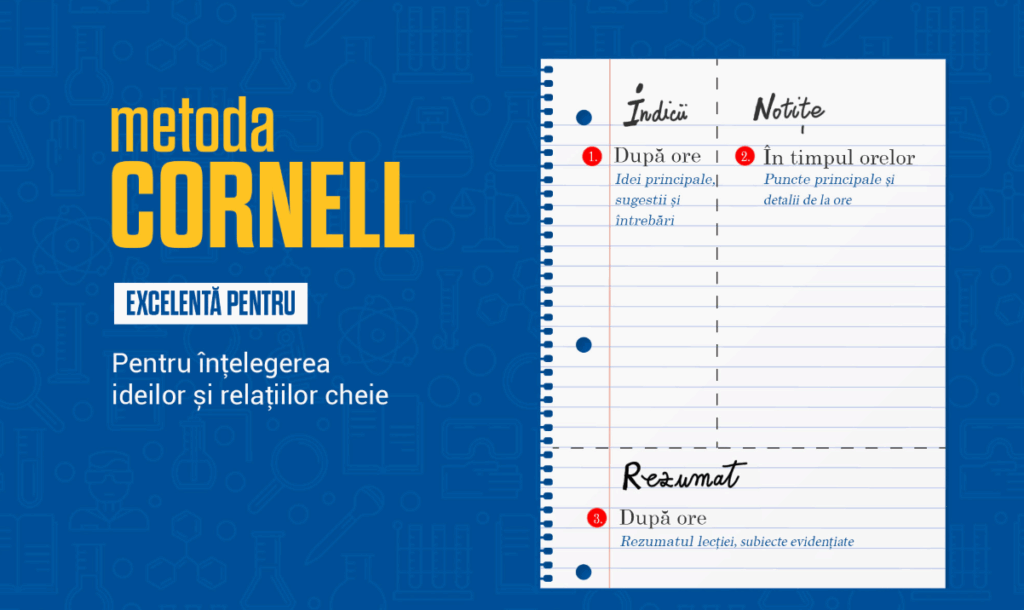 metoda
CORNELL
EXCELENTĂ PENTRU
Pentru înțelegerea
ideilor și relațiilor cheie
Indicii
1. După ore
Idei principale,
sugestii și
întrebări
Notițe
2. În timpul orelor
Puncte principale și
detalii de la ore
Rezumat
3. După ore
Rezumatul lecției, subiecte evidențiate